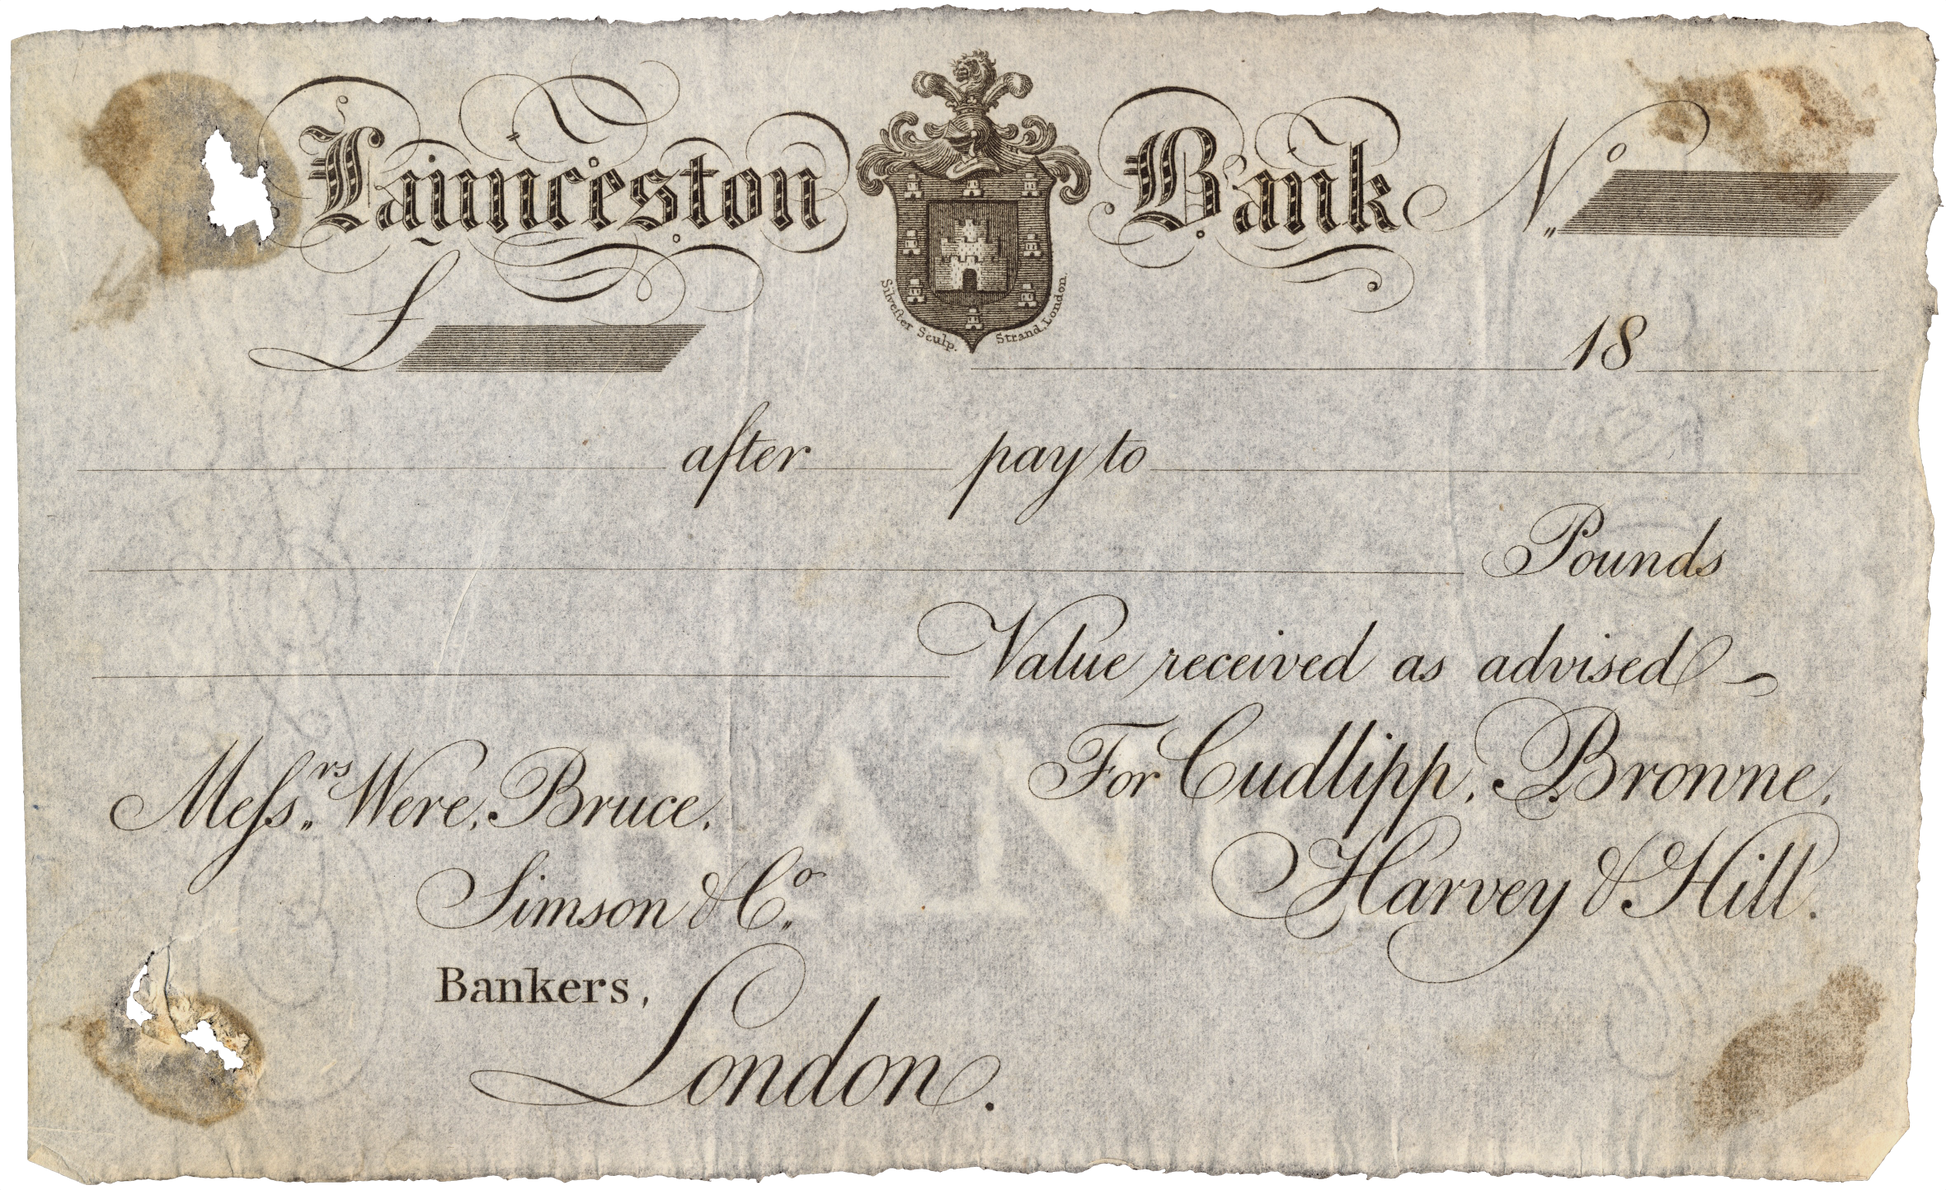 Launceston Bank No.
Silvester Sculp. Strand, London.
£
18
after pay to
Pounds
Value received as advised
For Cudlipp, Browne,
Messrs. Were, Bruce,
Harvey & Hill.
Simson & Co.
Bankers,
London.
BANK